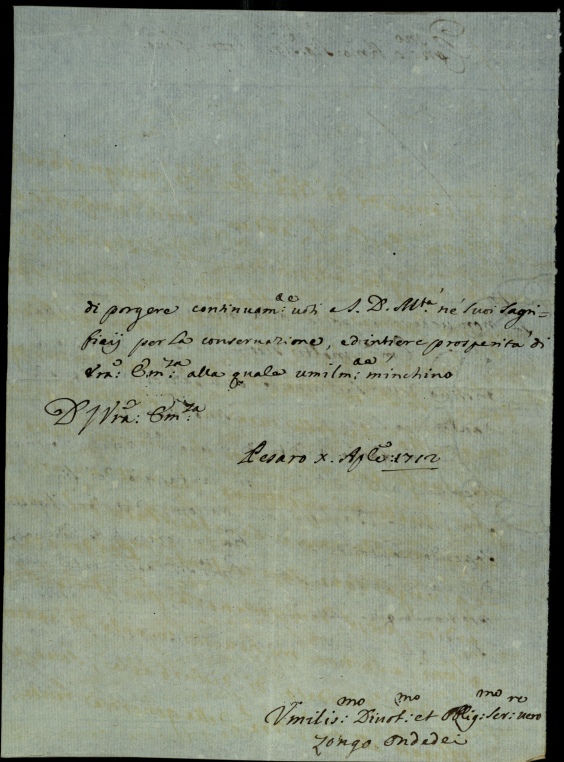 di porgere continuam:ᵃᵉ uoti a S. D. M.ᵗᵃ ne' suoi Sagri=
ficij per la conservazione, ed intiere prosperità di
Vra: Em:ᶻᵃ alla quale umilm:ᵃᵉ minchino
D' Vra: Em:ᶻᵃ
Pesaro x. Aple: 1712
Vmilis:ᵐᵒ Diuot:ᵐᵒ et Oblig:ᵐᵒ Ser:ʳᵉ uero
Zongo Ondedei